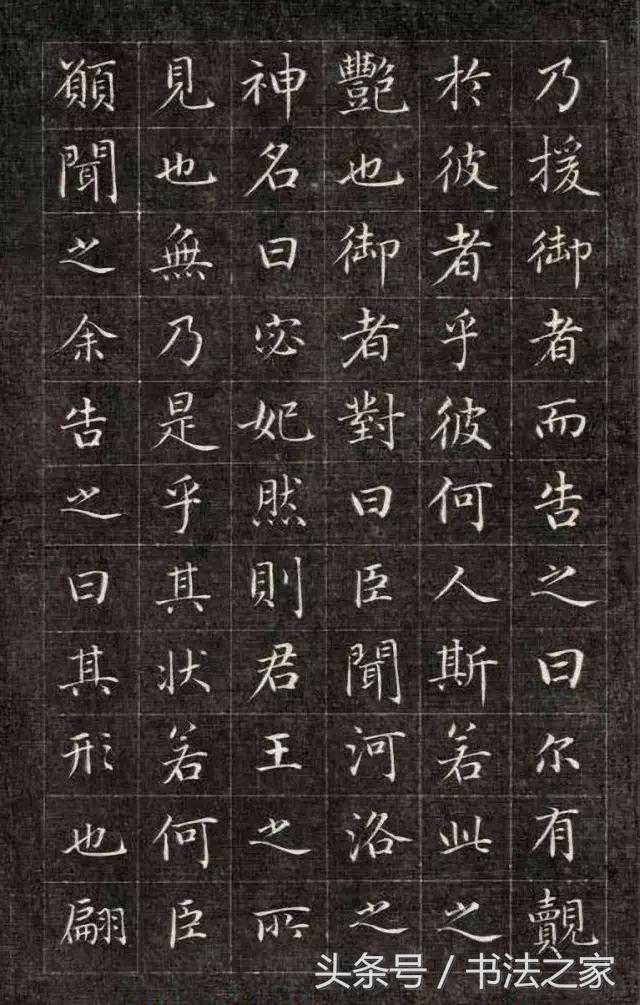 乃援御者而告之曰尔有覿
於彼者乎彼何人斯若此之
艷也御者對曰臣聞河洛之
神名曰宓妃然則君王之所
見也無乃是乎其狀若何臣
願聞之余告之曰其形也翩
头条号／书法之家